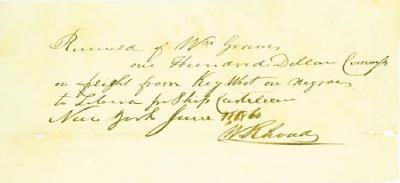 Received of Wm Graves
one Hundred Dollars Commss
on freight from Key West on Negroes
to Liberia pr Ship Castilian
New York June 1860
W. Rhoads